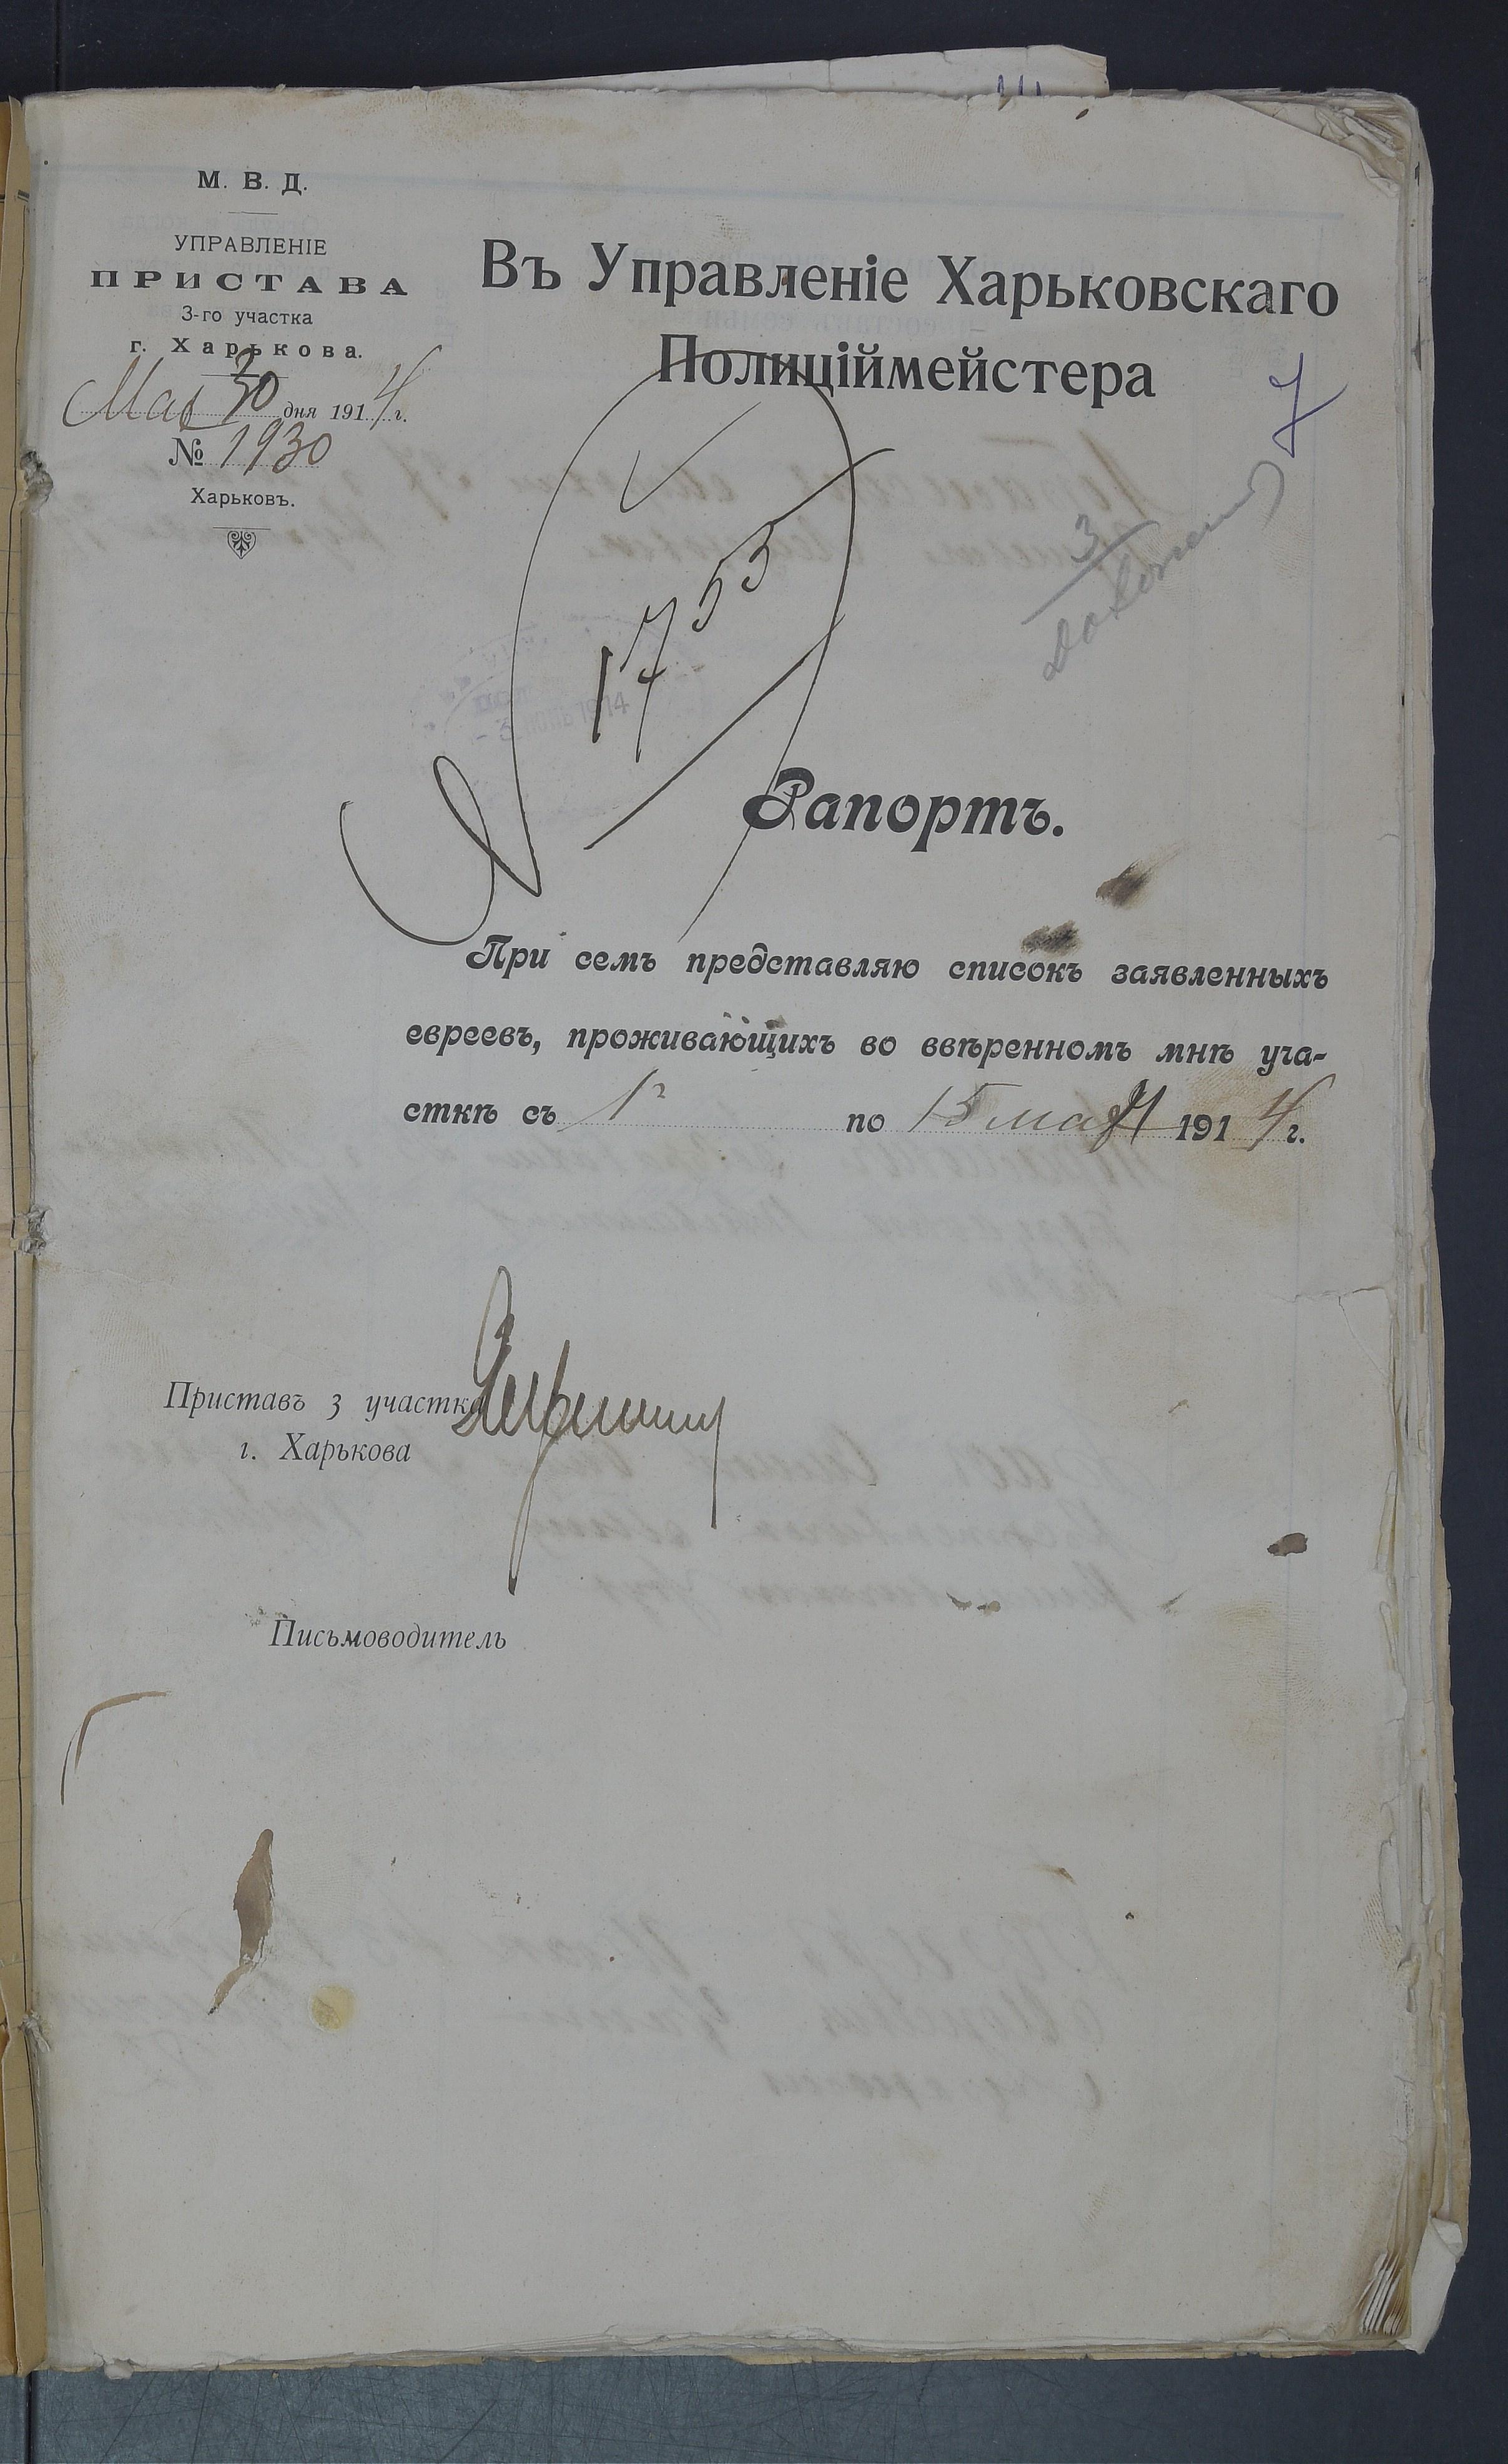 М. В. Д.
УПРАВЛЕНІЕ
ПРИСТАВА
3-го участка
г. Харькова.
Мая 30 дня 1914 г.
№ 1930
Харьковъ.
Въ Управленіе Харьковскаго
Полиціймейстера
7
3
1753
1914
Рапортъ.
При семъ представляю списокъ заявленныхъ
евреевъ, проживающихъ во ввѣренномъ мнѣ уча-
сткѣ съ 1 по 15 мая 1914 г.
Приставъ 3 участка
г. Харькова
Письмоводитель